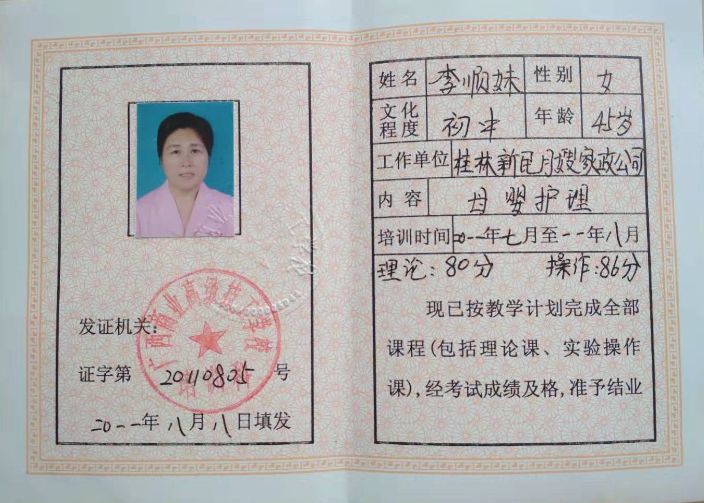 广西商业高级技工学校
培训部
发证机关:
证字第 20110805 号
二0一一年八月八日填发
姓名 李顺妹 性别 女
文化程度 初中 年龄 45岁
工作单位 桂林新民月嫂家政公司
内容 母婴护理
培训时间 二0一一年七月至一一年八月
理论:80分 操作:86分
现已按教学计划完成全部
课程(包括理论课、实验操作
课),经考试成绩及格,准予结业